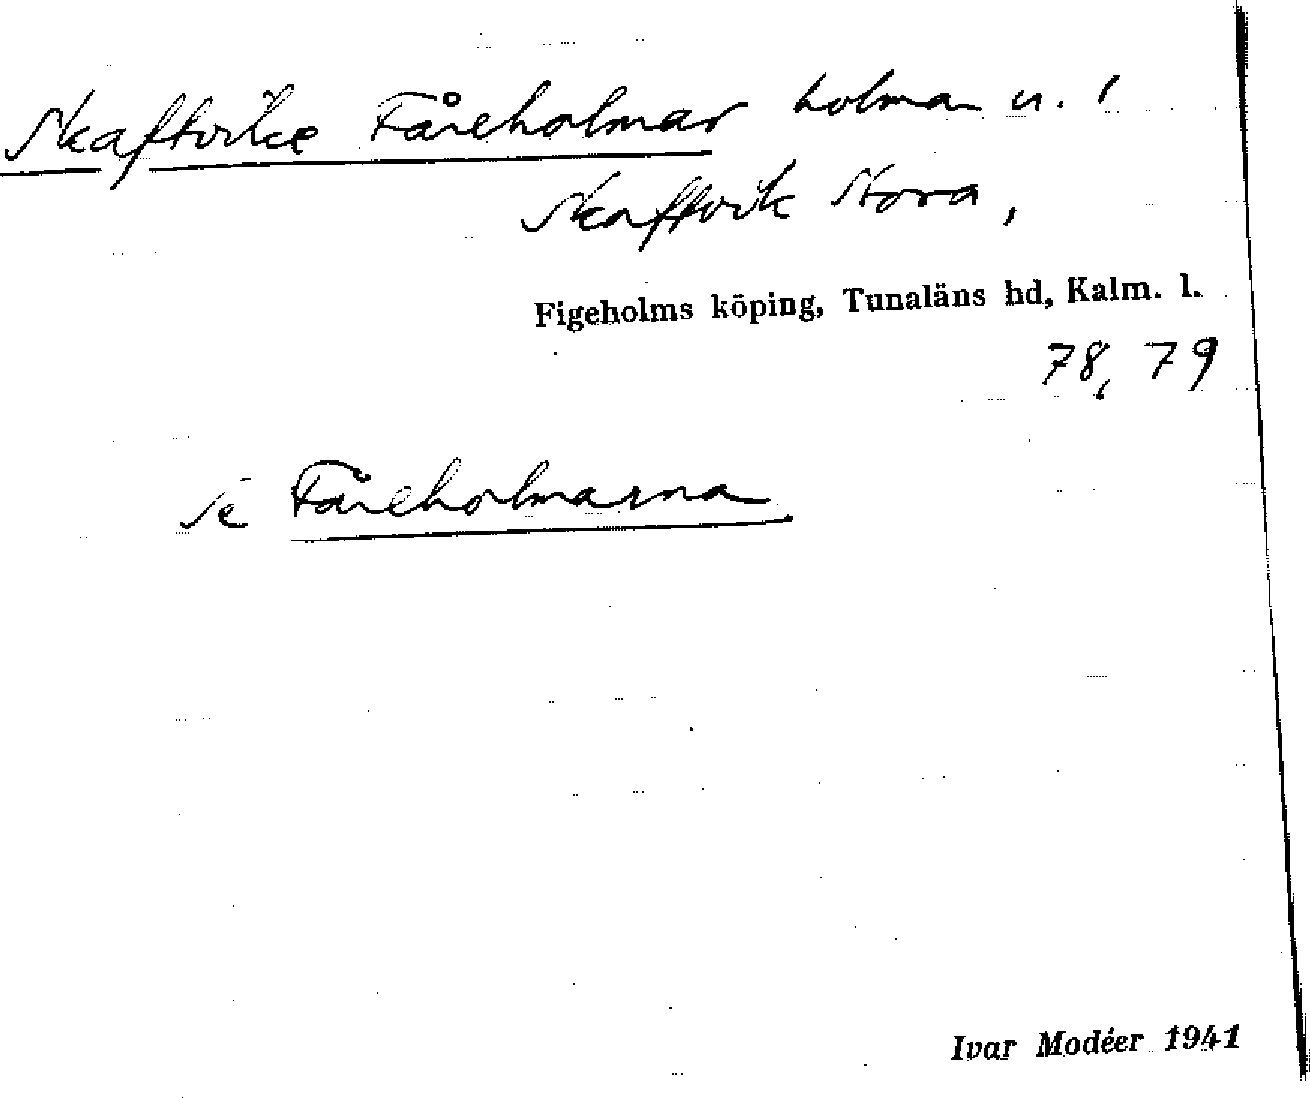 Skaftvike Fåreholmar holmar u. 1
Skaftvik Stora,
Figeholms köping, Tunaläns hd, Kalm. l.
78, 79
se Fåreholmarna
Ivar Modéer 1941